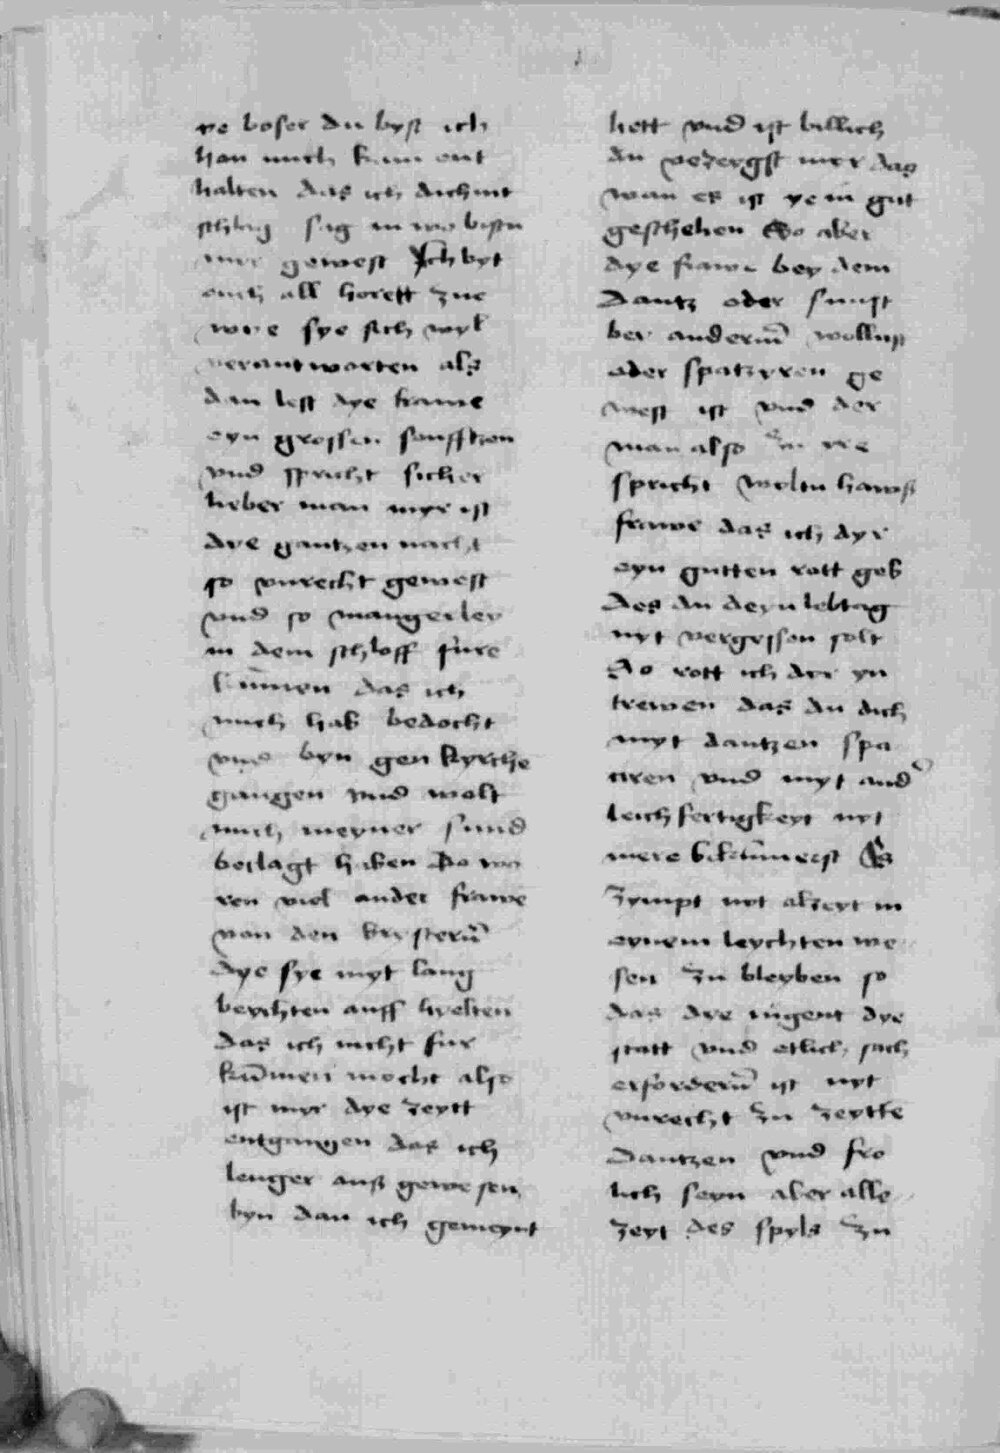 ye boser du byst ich
han mich kum ent
halten das ich dich nit
schlug sag m wo bistu
mir gewest Ich byt
euch all horett zue
wye sye sich wyl
verantworten als
dan lest dye frawe
eyn grossen seufftzen
vnd spricht sicher
lieber man myr ist
dye gantzen nacht
so vnrecht gewest
vnd so mangerley
in dem schloff fure
kummen das ich
mich hab bedocht
vnd byn gen kyrche
gangen vnd wolt
mich meyner sund
beclagt haben Do wo
ren viel ander frawe
von den
dye sye myt lang
beychten auff hyelten
das ich nicht fur
kūmen mocht also
ist myr dye zeytt
entgangen das ich
lenger auß gewesen
byn dan ich gemeynt
hett vnd ist billich
du mir das
wan es ist ye in gut
geschehen So aber
dye frawe bey dem
dantz oder sunst
bey anderm̄ wollust
oder spatzyren ge
west ist vnd der
man also zu yre
spricht woltu hawß
frawe das ich dyr
eyn gutten rott geb
des du deyn lebtag
nyt vergessen solt
so rott ich dyr yn
trewen das du dich
myt dantzen spa
ciren vnd myt and
leichfertigkeyt nyt
mere bekūmerst Es
zympt nyt alzeyt in
eynem leychten we
sen zu bleyben so
das dye iugent dye
statt vnd etlich sach
erforderū ist nyt
vnrecht zu zeytte
dantzen vnd fro
lich seyn aber alle
zeyt des spyls zu